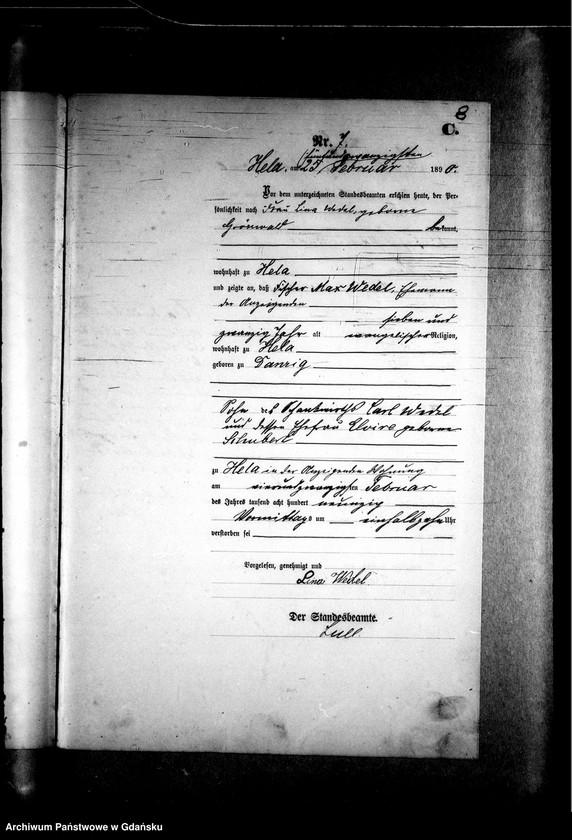 8
C.
Nr. 7.
fünfundzwanzigsten
Hela, am 25 Februar 1890.
Vor dem unterzeichneten Standesbeamten erschien heute, der Per-
sönlichkeit nach Frau Lina Wedel, geborne
Grönwald bekannt,
wohnhaft zu Hela
und zeigte an, daß Fischer Max Wedel, Ehemann
der Anzeigenden
sieben und
zwanzig Jahr alt evangelischer Religion,
wohnhaft zu Hela
geboren zu Danzig
Sohn des Schankwirths Carl Wedel
und dessen Ehefrau Elvire geborne
Schubert
zu Hela in der Anzeigenden Wohnung
am vierundzwanzigsten Februar
des Jahres tausend acht hundert neunzig
Vormittags um einhalbzehn Uhr
verstorben sei
Vorgelesen, genehmigt und
Lina Wedel.
Der Standesbeamte.
Archiwum Państwowe w Gdańsku